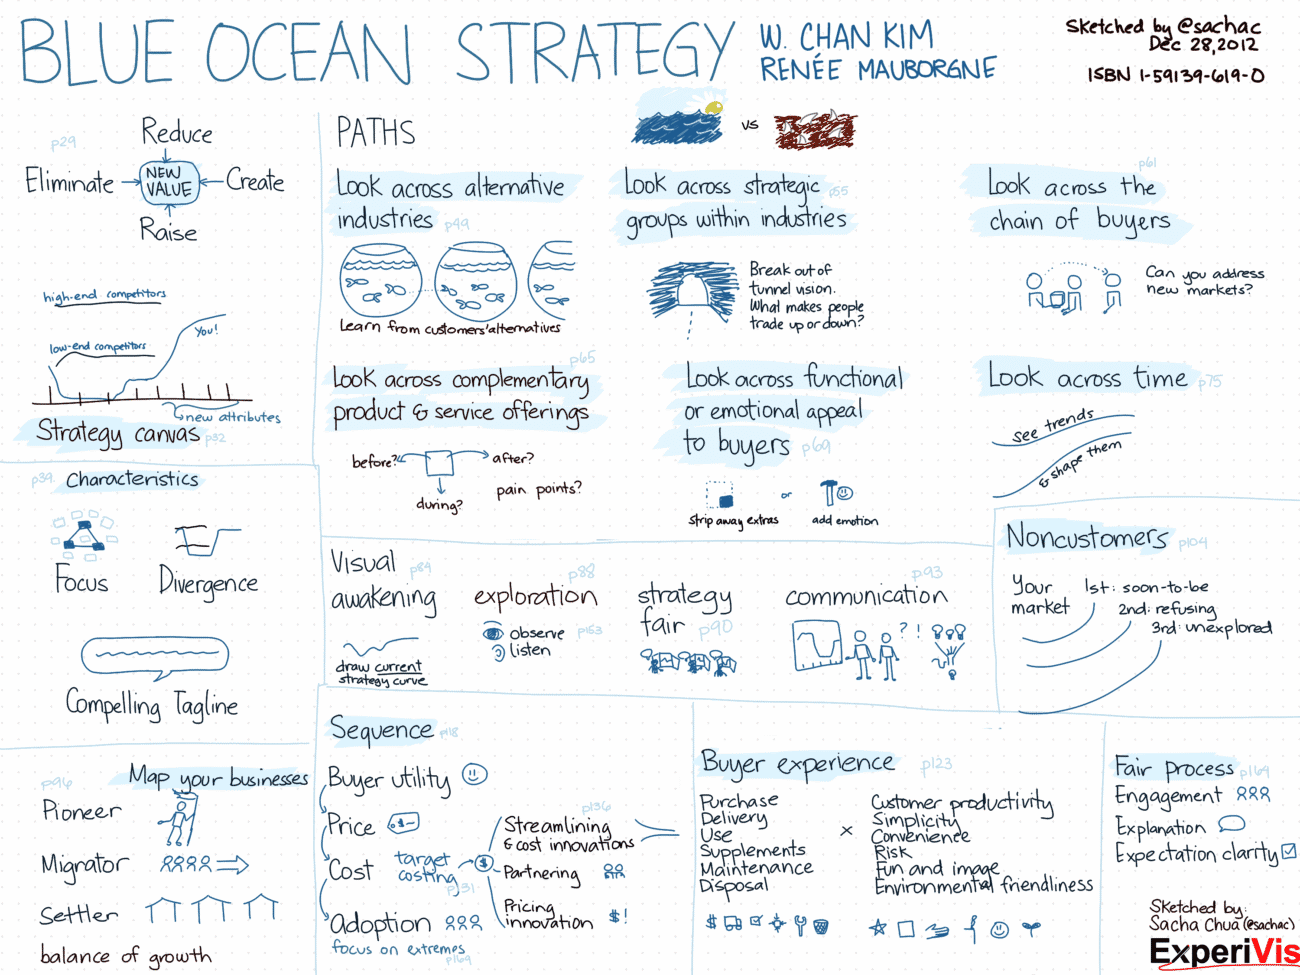 BLUE OCEAN STRATEGY
W. CHAN KIM
RENÉE MAUBORGNE
Sketched by @sachac
Dec 28, 2012
ISBN 1-59139-619-0
p29
Reduce
Eliminate
NEW
VALUE
Create
Raise
high-end competitors
low-end competitors
You!
new attributes
Strategy canvas p32
PATHS
vs
Look across alternative
industries p49
Learn from customers' alternatives
Look across strategic
groups within industries
p55
Break out of
tunnel vision.
What makes people
trade up or down?
p61
Look across the
chain of buyers
Can you address
new markets?
p65
Look across complementary
product & service offerings
before?
after?
during?
pain points?
Look across functional
or emotional appeal
to buyers p69
or
strip away extras
add emotion
Look across time p75
see trends
& shape them
p39
Characteristics
Focus
Divergence
Compelling Tagline
Visual
awakening
p84
draw current
strategy curve
p88
exploration
observe
listen
p153
strategy
fair p90
p93
communication
? !
Noncustomers p104
Your
market
1st: soon-to-be
2nd: refusing
3rd: unexplored
p96
Map your businesses
Pioneer
Migrator
Settler
balance of growth
Sequence p118
Buyer utility
Price
$-
Cost
target
costing
p131
$
p136
Streamlining
& cost innovations
Partnering
Pricing
innovation
$!
Adoption
focus on extremes
p169
Buyer experience p123
Purchase
Delivery
Use
Supplements
Maintenance
Disposal
×
Customer productivity
Simplicity
Convenience
Risk
Fun and image
Environmental friendliness
$
Fair process p169
Engagement
Explanation
Expectation clarity
Sketched by:
Sacha Chua (@sachac)
ExperiVis